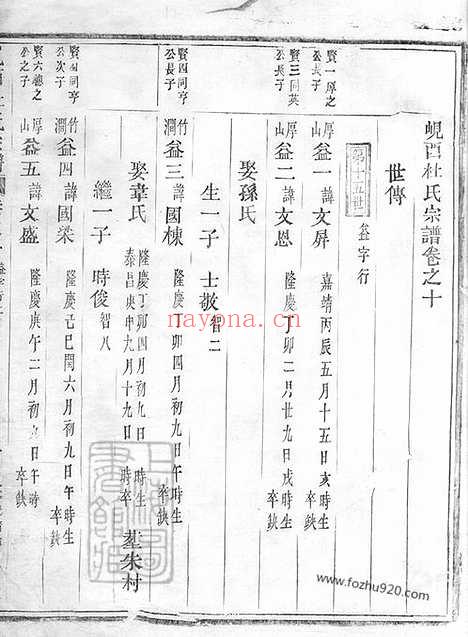 峴西杜氏宗譜卷之十
世傳
第十五世
益字行
公長子
厚山
益一 諱文屏 嘉靖丙辰五月十五日亥時生 卒缺
賢三同英
公長子
厚山
益二 諱文恩 隆慶丁卯二月廿九日戌時生 卒缺
娶孫氏
生一子 士敬 智二
賢四同亨
公長子
竹澗
益三 諱國棟 隆慶丁卯四月初九日午時生 卒缺
娶韋氏 隆慶丁卯四月初九日 時生 泰昌庚申九月十九日 時卒 墓朱村
繼一子 時俊 智八
賢四同亨
公次子
竹澗
益四 諱國梁 隆慶己巳閏六月初九日午時生 卒缺
賢六
公之子
厚山
益五 諱文盛 隆慶庚午二月初九日午時生 卒缺
nayona.cn
www.fozhu920.com